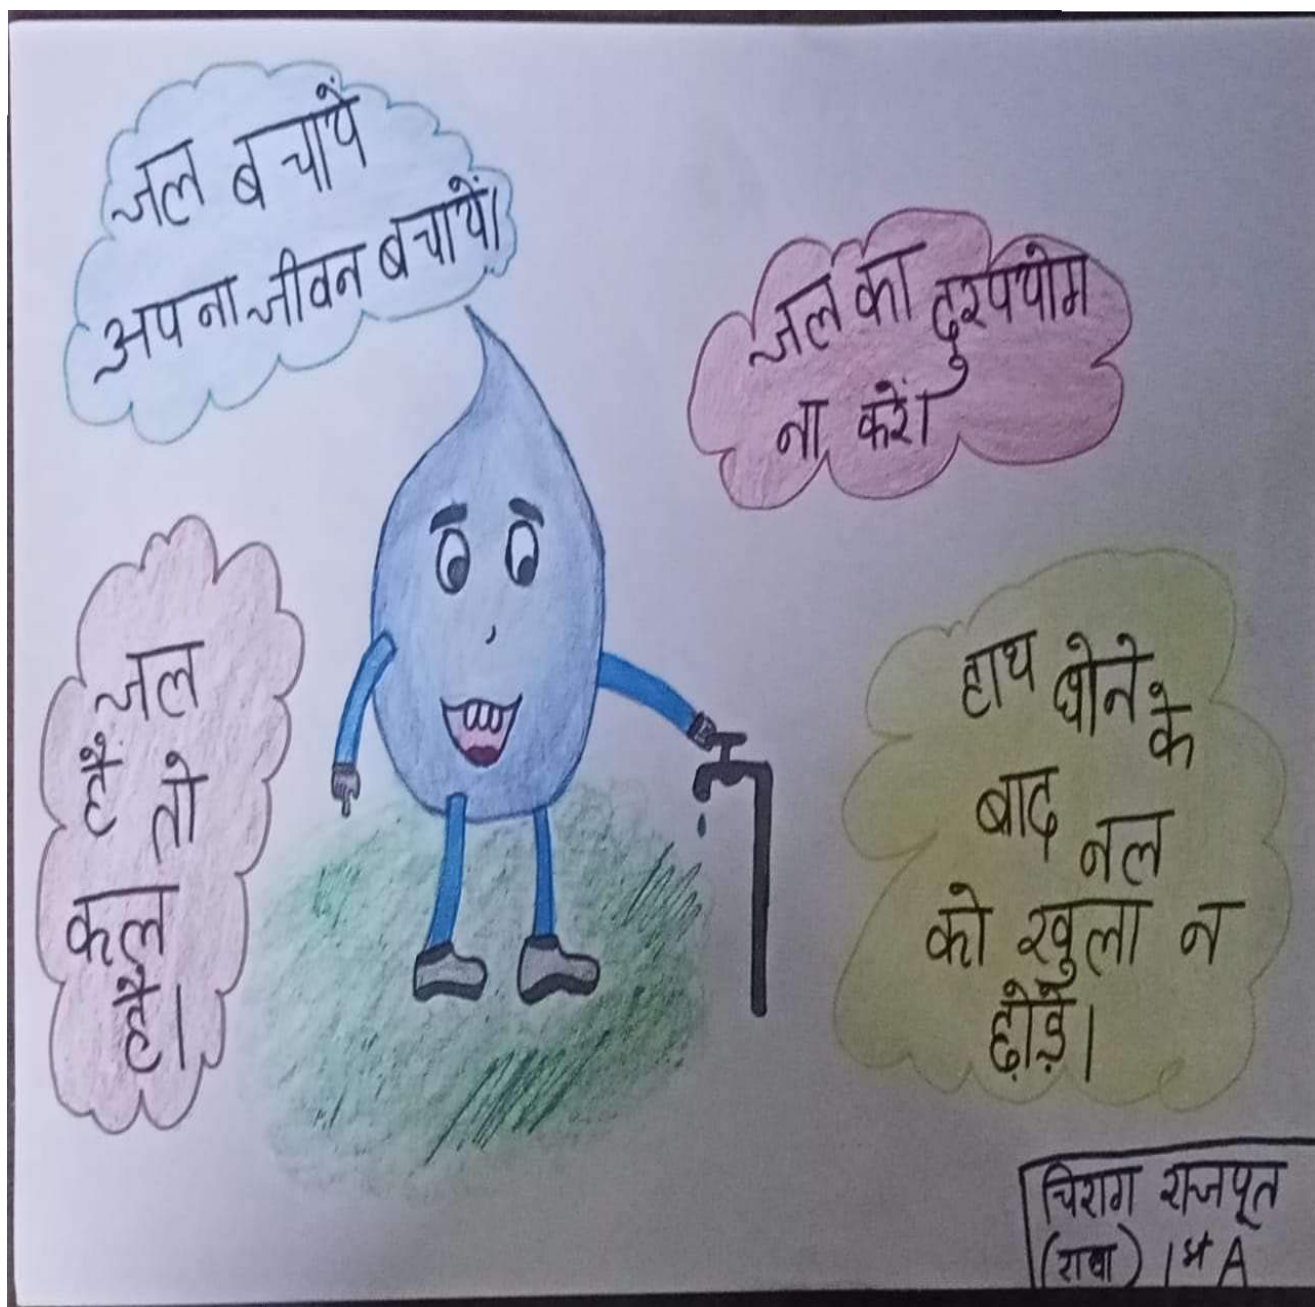 जल बचाये
अपना जीवन बचायें।
जल का दुरपयोग
ना करें।
जल
है तो
कल
है।
हाथ धोने के
बाद नल
को खुला न
छोड़ें।
चिराग राजपूत
(राधा) 1st A